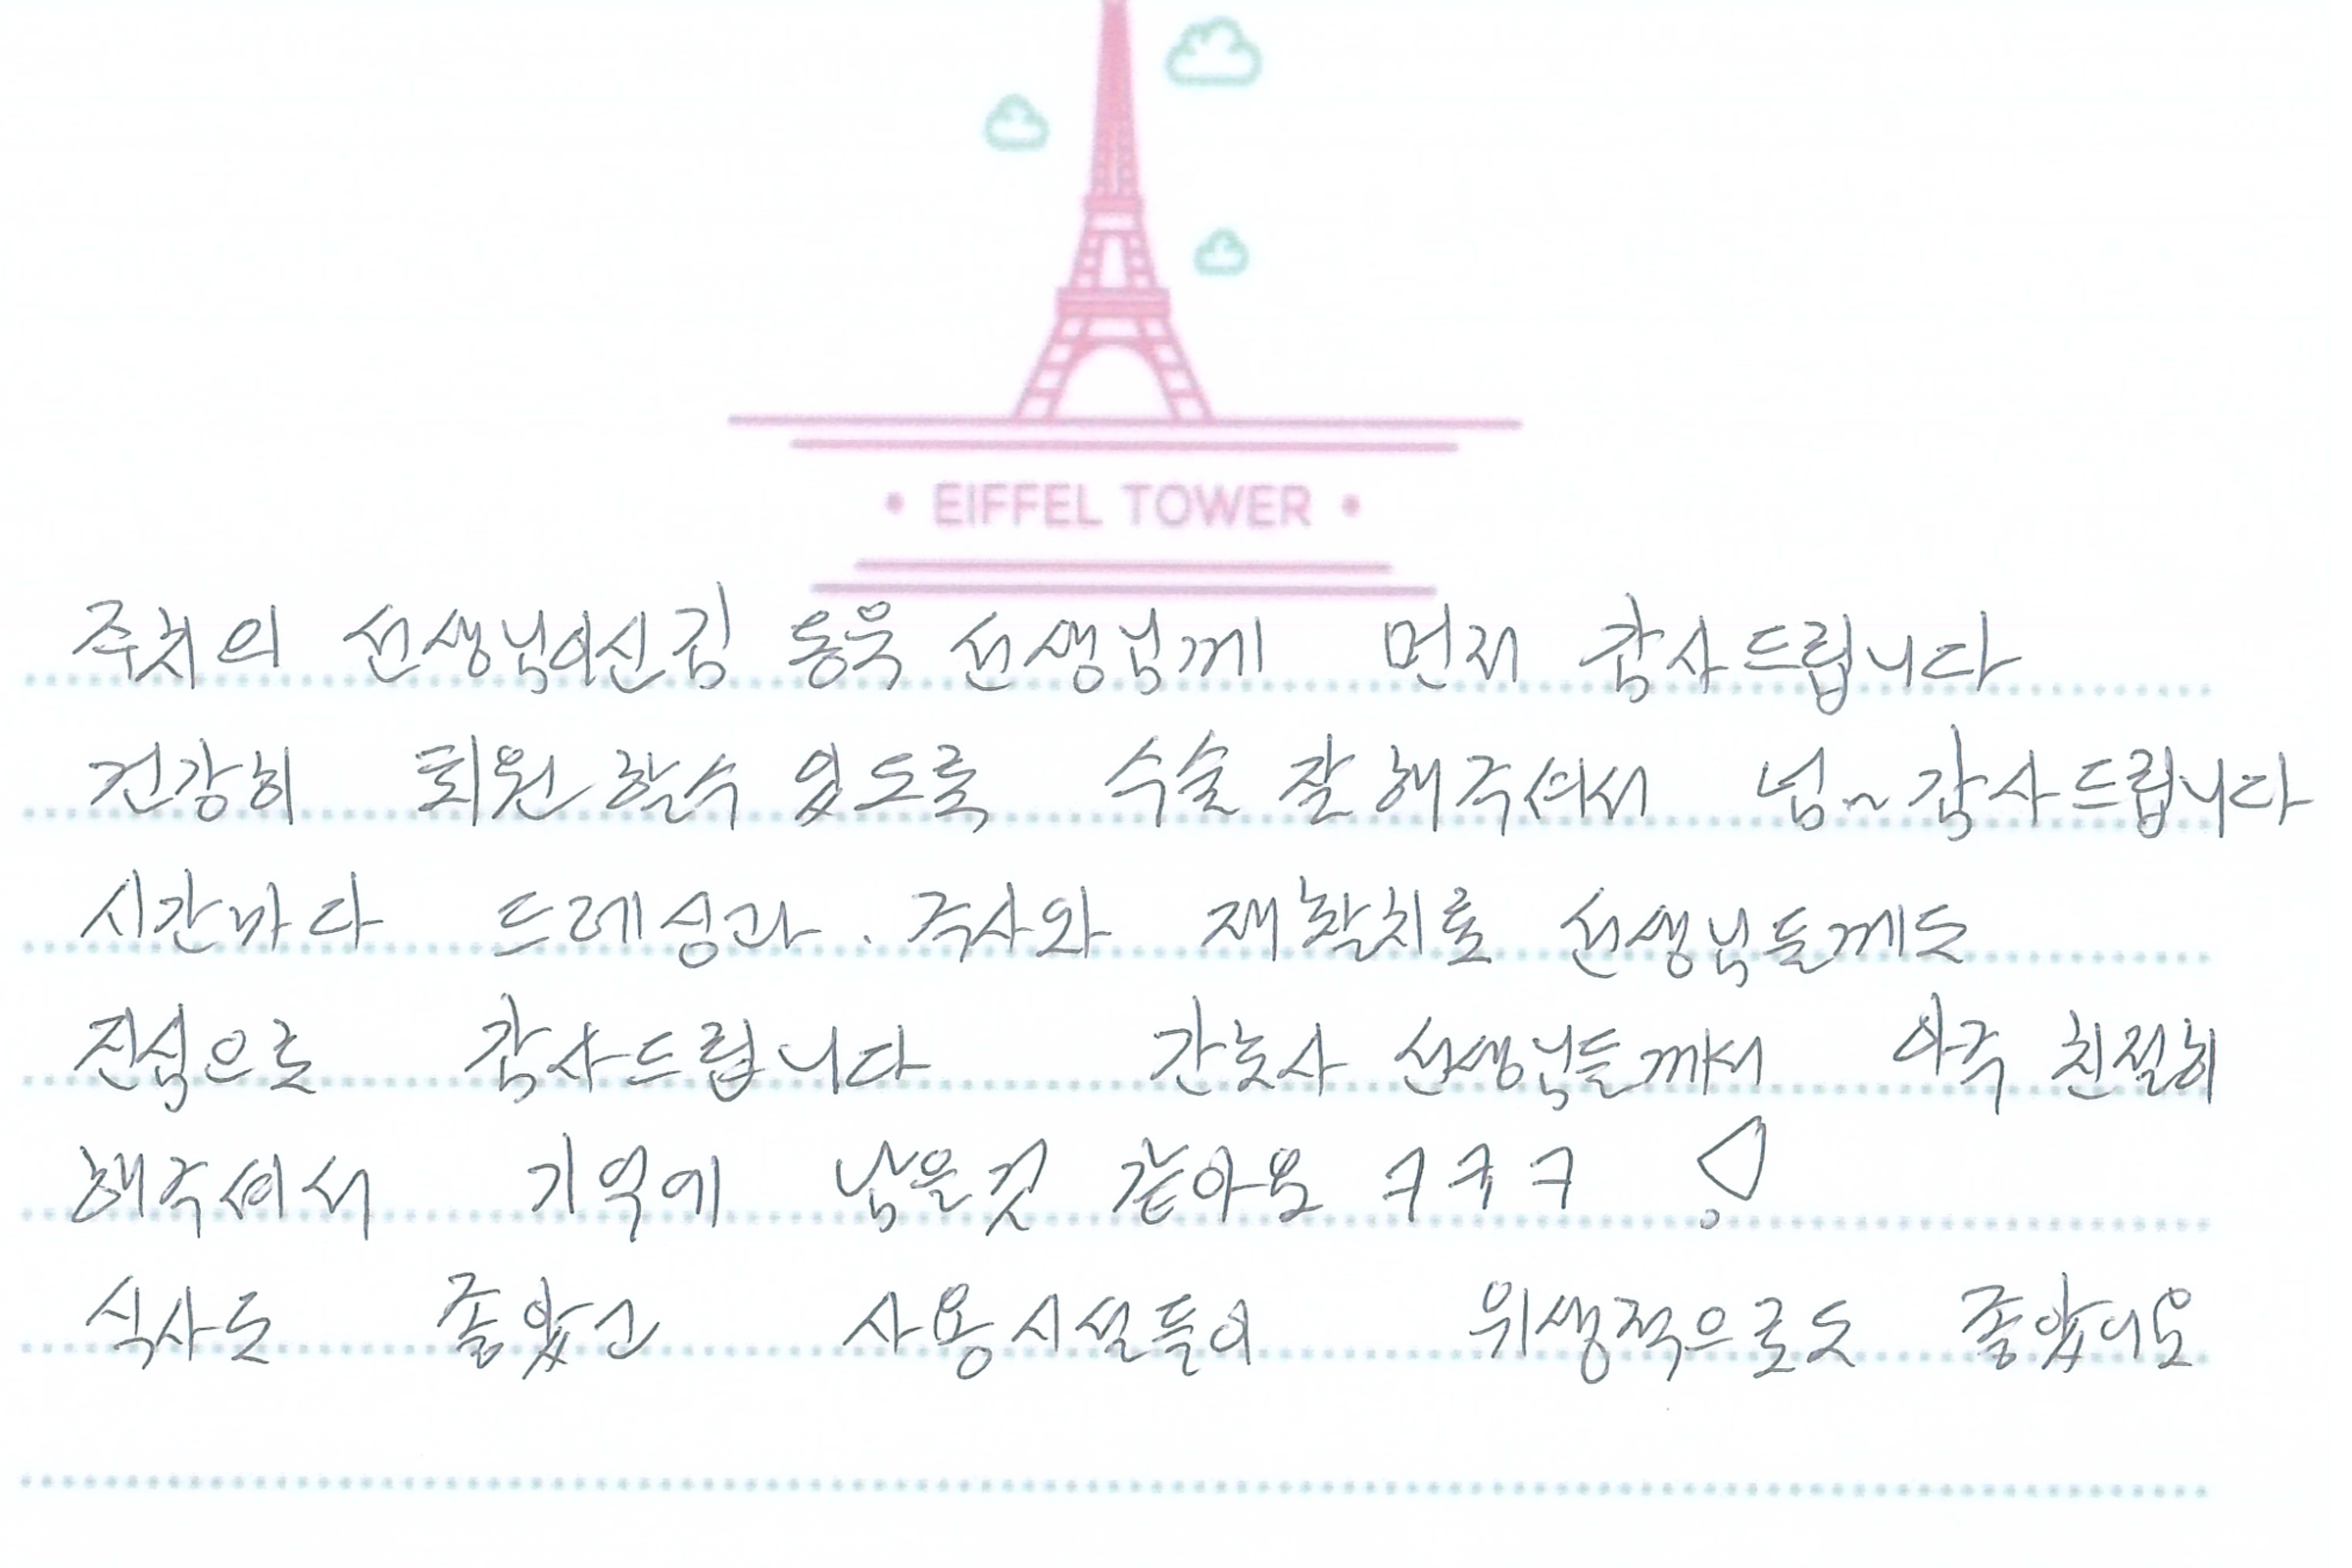 EIFFEL TOWER
주치의 선생님이신김 동욱 선생님께 먼저 감사드립니다
건강히 퇴원 할수 있도록 수술 잘 해주셔서 넘~감사드립니다
시간마다 드레싱과. 주사와 재활치료 선생님들께도
진심으로 감사드립니다 간호사 선생님들께서 아주 친절히
해주셔서 기억에 남은것 같아요 ㅋㅋㅋ !
식사도 좋았고 사용시설들이 위생적으로도 좋았어요